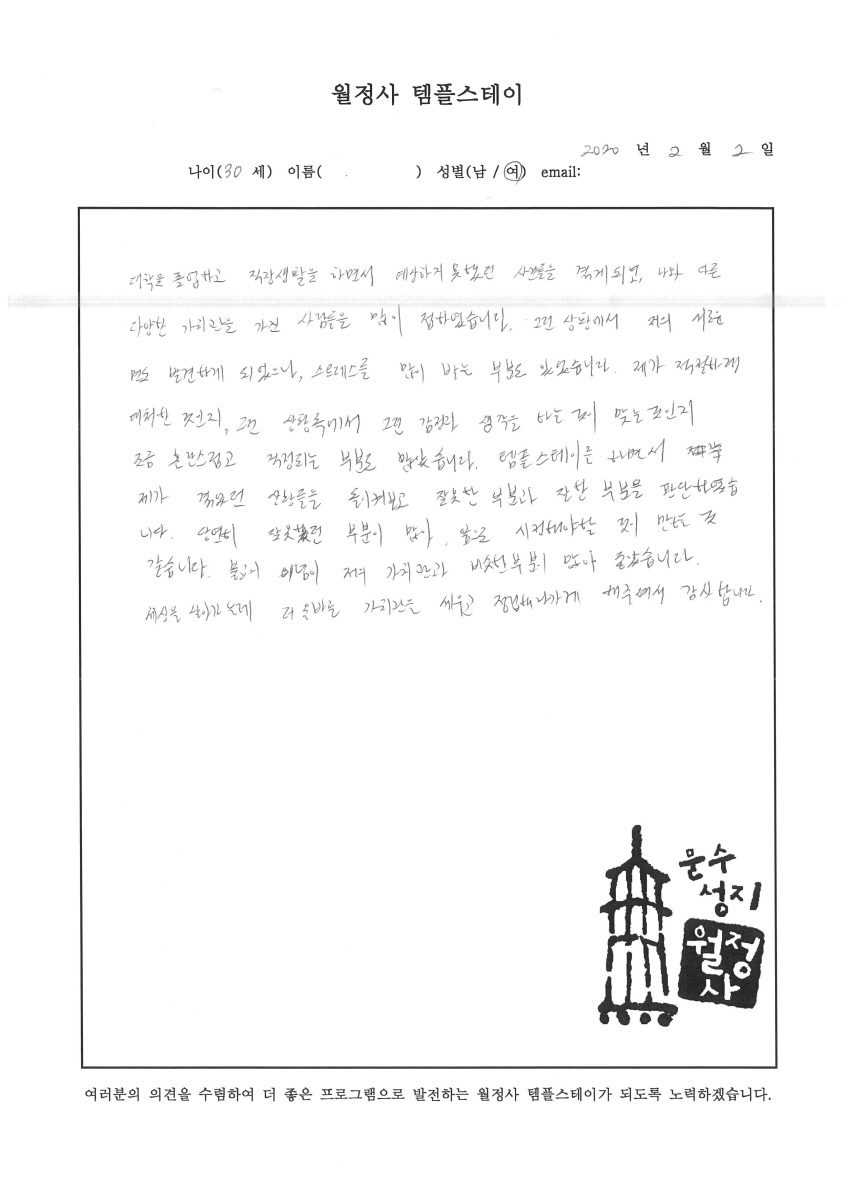 월정사 템플스테이
2020 년 2 월 2 일
나이(30 세) 이름( ) 성별(남 / 여) email:
대학을 졸업하고 직장생활을 하면서 예상하지 못했던 사건들을 겪게 되면, 나와 다른
다양한 가치관을 가진 사람들을 많이 접하였습니다. 그런 상황에서 저의 새로운
면도 발견하게 되었으나, 스트레스를 많이 받는 부분도 있었습니다. 제가 적절하게
대처한 것인지, 그런 상황속에서 그런 감정과 생각을 하는 것이 맞는 것인지
조금 혼란스럽고 걱정되는 부분도 많았습니다. 템플스테이를 하면서
제가 겪었던 상황들을 돌이켜보고 잘못한 부분과 잘한 부분을 판단하였습
니다. 당연히 잘못했던 부분이 많아, 앞으로 시정해야할 것이 많은 것
같습니다. 불교의 이념이 저의 가치관과 비슷한 부분이 많아 좋았습니다.
세상을 살아가는데 더 올바른 가치관을 세우고 정립해나가게 해주셔서 감사합니다.
문수
성지
월정
사
여러분의 의견을 수렴하여 더 좋은 프로그램으로 발전하는 월정사 템플스테이가 되도록 노력하겠습니다.